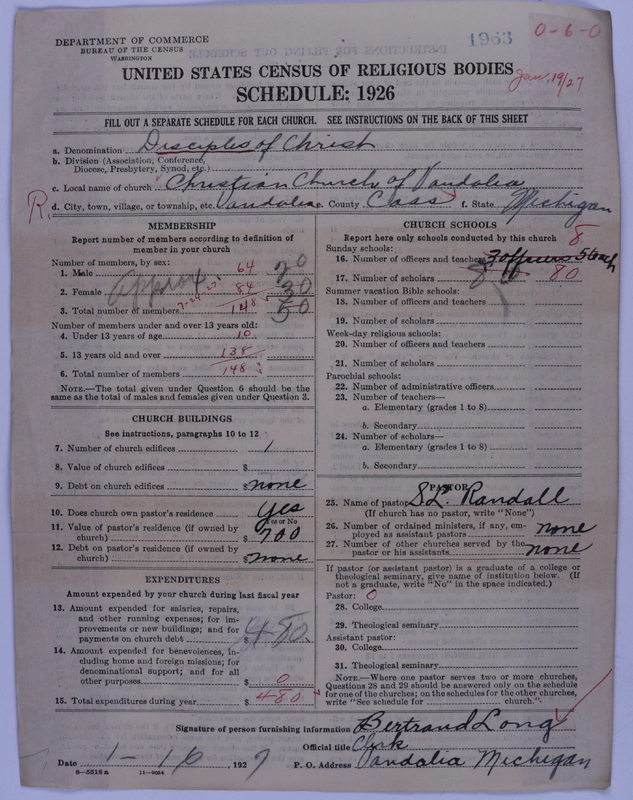 DEPARTMENT OF COMMERCE
BUREAU OF THE CENSUS
WASHINGTON
1963
0-6-0
Jan. 19/27
UNITED STATES CENSUS OF RELIGIOUS BODIES
SCHEDULE: 1926
FILL OUT A SEPARATE SCHEDULE FOR EACH CHURCH. SEE INSTRUCTIONS ON THE BACK OF THIS SHEET
a. Denomination Disciples of Christ
b. Division (Association, Conference, Diocese, Presbytery, Synod, etc.)
c. Local name of church Christian Church of Vandalia
R. d. City, town, village, or township, etc. Vandalia e. County Cass f. State Michigan
MEMBERSHIP
Report number of members according to definition of member in your church
Number of members, by sex:
1. Male 64 20
2. Female 84 30
Approx
3. Total number of members 148 50
Number of members under and over 13 years old:
4. Under 13 years of age 10
5. 13 years old and over 138
6. Total number of members 148
NOTE.—The total given under Question 6 should be the same as the total of males and females given under Question 3.
CHURCH BUILDINGS
See instructions, paragraphs 10 to 12
7. Number of church edifices 1
8. Value of church edifices $
9. Debt on church edifices $ none
10. Does church own pastor's residence yes
Yes or No
11. Value of pastor's residence (if owned by church) $ 700
12. Debt on pastor's residence (if owned by church) $ none
EXPENDITURES
Amount expended by your church during last fiscal year
13. Amount expended for salaries, repairs, and other running expenses; for improvements or new buildings; and for payments on church debt $ 480
14. Amount expended for benevolences, including home and foreign missions; for denominational support; and for all other purposes $ 0
15. Total expenditures during year $ 480
CHURCH SCHOOLS
Report here only schools conducted by this church
Sunday schools:
8
16. Number of officers and teachers 3 officers 5 teach
17. Number of scholars 80 80
Summer vacation Bible schools:
18. Number of officers and teachers
19. Number of scholars
Week-day religious schools:
20. Number of officers and teachers
21. Number of scholars
Parochial schools:
22. Number of administrative officers
23. Number of teachers—
a. Elementary (grades 1 to 8)
b. Secondary
24. Number of scholars—
a. Elementary (grades 1 to 8)
b. Secondary
PASTOR
25. Name of pastor S.L. Randall
(If church has no pastor, write "None")
26. Number of ordained ministers, if any, employed as assistant pastors none
27. Number of other churches served by the pastor or his assistants none
If pastor (or assistant pastor) is a graduate of a college or theological seminary, give name of institution below. (If not a graduate, write "No" in the space indicated.)
Pastor: 0
28. College
29. Theological seminary
Assistant pastor:
30. College
31. Theological seminary
NOTE.—Where one pastor serves two or more churches, Questions 28 and 29 should be answered only on the schedule for one of the churches; on the schedules for the other churches, write "See schedule for church."
Signature of person furnishing information Bertrand Long
Official title Clerk
Date 1-16, 1927 P. O. Address Vandalia Michigan
8-5518a 11-9054